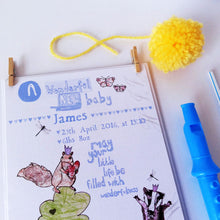 A
Wonderful
NEW baby
James
21st April 2016, at 13:15
6lbs 8oz
may
your
little
life be
filled with
wonderfulness